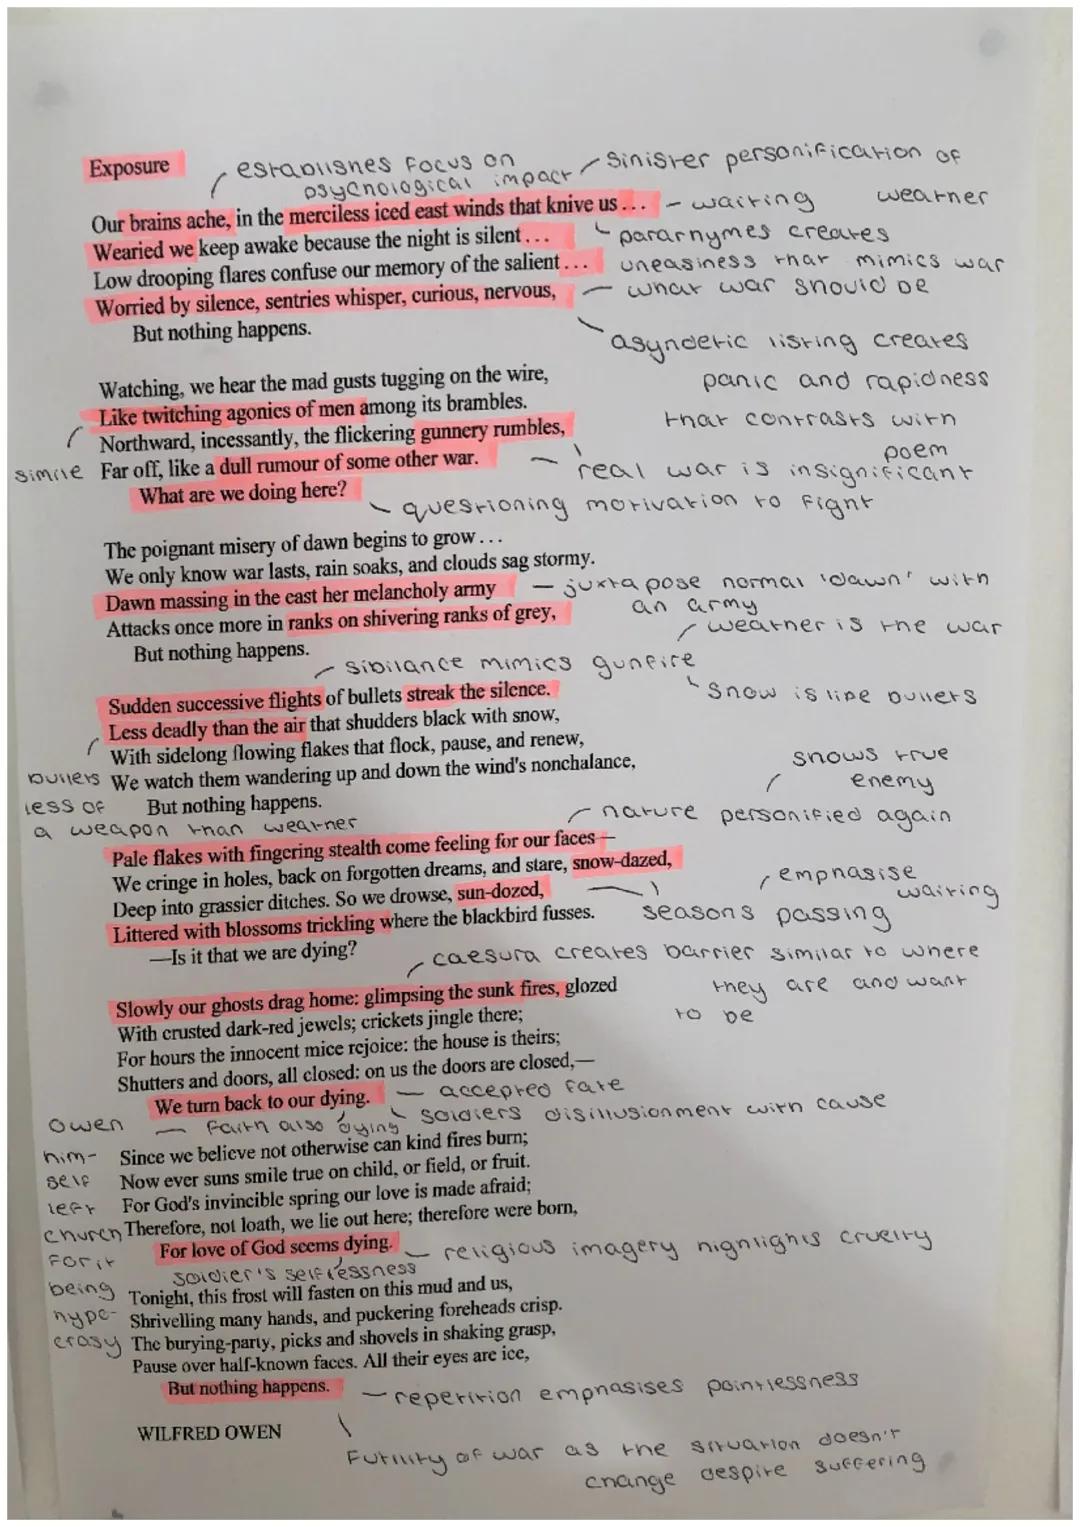 Exposure
establishes focus on
psychological impact
sinister personification of
weather
Our brains ache, in the merciless iced east winds that knive us...
- waiting
Wearied we keep awake because the night is silent...
pararhymes creates
Low drooping flares confuse our memory of the salient...
uneasiness that mimics war
Worried by silence, sentries whisper, curious, nervous,
what war should be
But nothing happens.
asyndetic listing creates
panic and rapidness
that contrasts with
poem
Watching, we hear the mad gusts tugging on the wire,
Like twitching agonies of men among its brambles.
Northward, incessantly, the flickering gunnery rumbles,
simile
Far off, like a dull rumour of some other war.
real war is insignificant
What are we doing here?
questioning motivation to fight
The poignant misery of dawn begins to grow...
We only know war lasts, rain soaks, and clouds sag stormy.
Dawn massing in the east her melancholy army
- juxtapose normal 'dawn' with
an army
Attacks once more in ranks on shivering ranks of grey,
weather is the war
But nothing happens.
sibilance mimics gunfire
snow is like bullets
Sudden successive flights of bullets streak the silence.
Less deadly than the air that shudders black with snow,
With sidelong flowing flakes that flock, pause, and renew,
We watch them wandering up and down the wind's nonchalance,
But nothing happens.
bullets
less of
a weapon than weather
shows true
enemy
nature personified again
Pale flakes with fingering stealth come feeling for our faces—
We cringe in holes, back on forgotten dreams, and stare, snow-dazed,
Deep into grassier ditches. So we drowse, sun-dozed,
emphasise
waiting
Littered with blossoms trickling where the blackbird fusses.
seasons passing
—Is it that we are dying?
caesura creates barrier similar to where
they are and want
to be
Slowly our ghosts drag home: glimpsing the sunk fires, glozed
With crusted dark-red jewels; crickets jingle there;
For hours the innocent mice rejoice: the house is theirs;
Shutters and doors, all closed: on us the doors are closed,—
We turn back to our dying.
- accepted fate
soldiers disillusionment with cause
faith also dying
Owen
him-
self
left
church
for it
being
hypo-
crasy
Since we believe not otherwise can kind fires burn;
Now ever suns smile true on child, or field, or fruit.
For God's invincible spring our love is made afraid;
Therefore, not loath, we lie out here; therefore were born,
For love of God seems dying.
religious imagery highlights cruelty
soldier's selflessness
Tonight, this frost will fasten on this mud and us,
Shrivelling many hands, and puckering foreheads crisp.
The burying-party, picks and shovels in shaking grasp,
Pause over half-known faces. All their eyes are ice,
But nothing happens.
- repetition emphasises pointlessness
WILFRED OWEN
Futility of war as the situation doesn't
change despite suffering